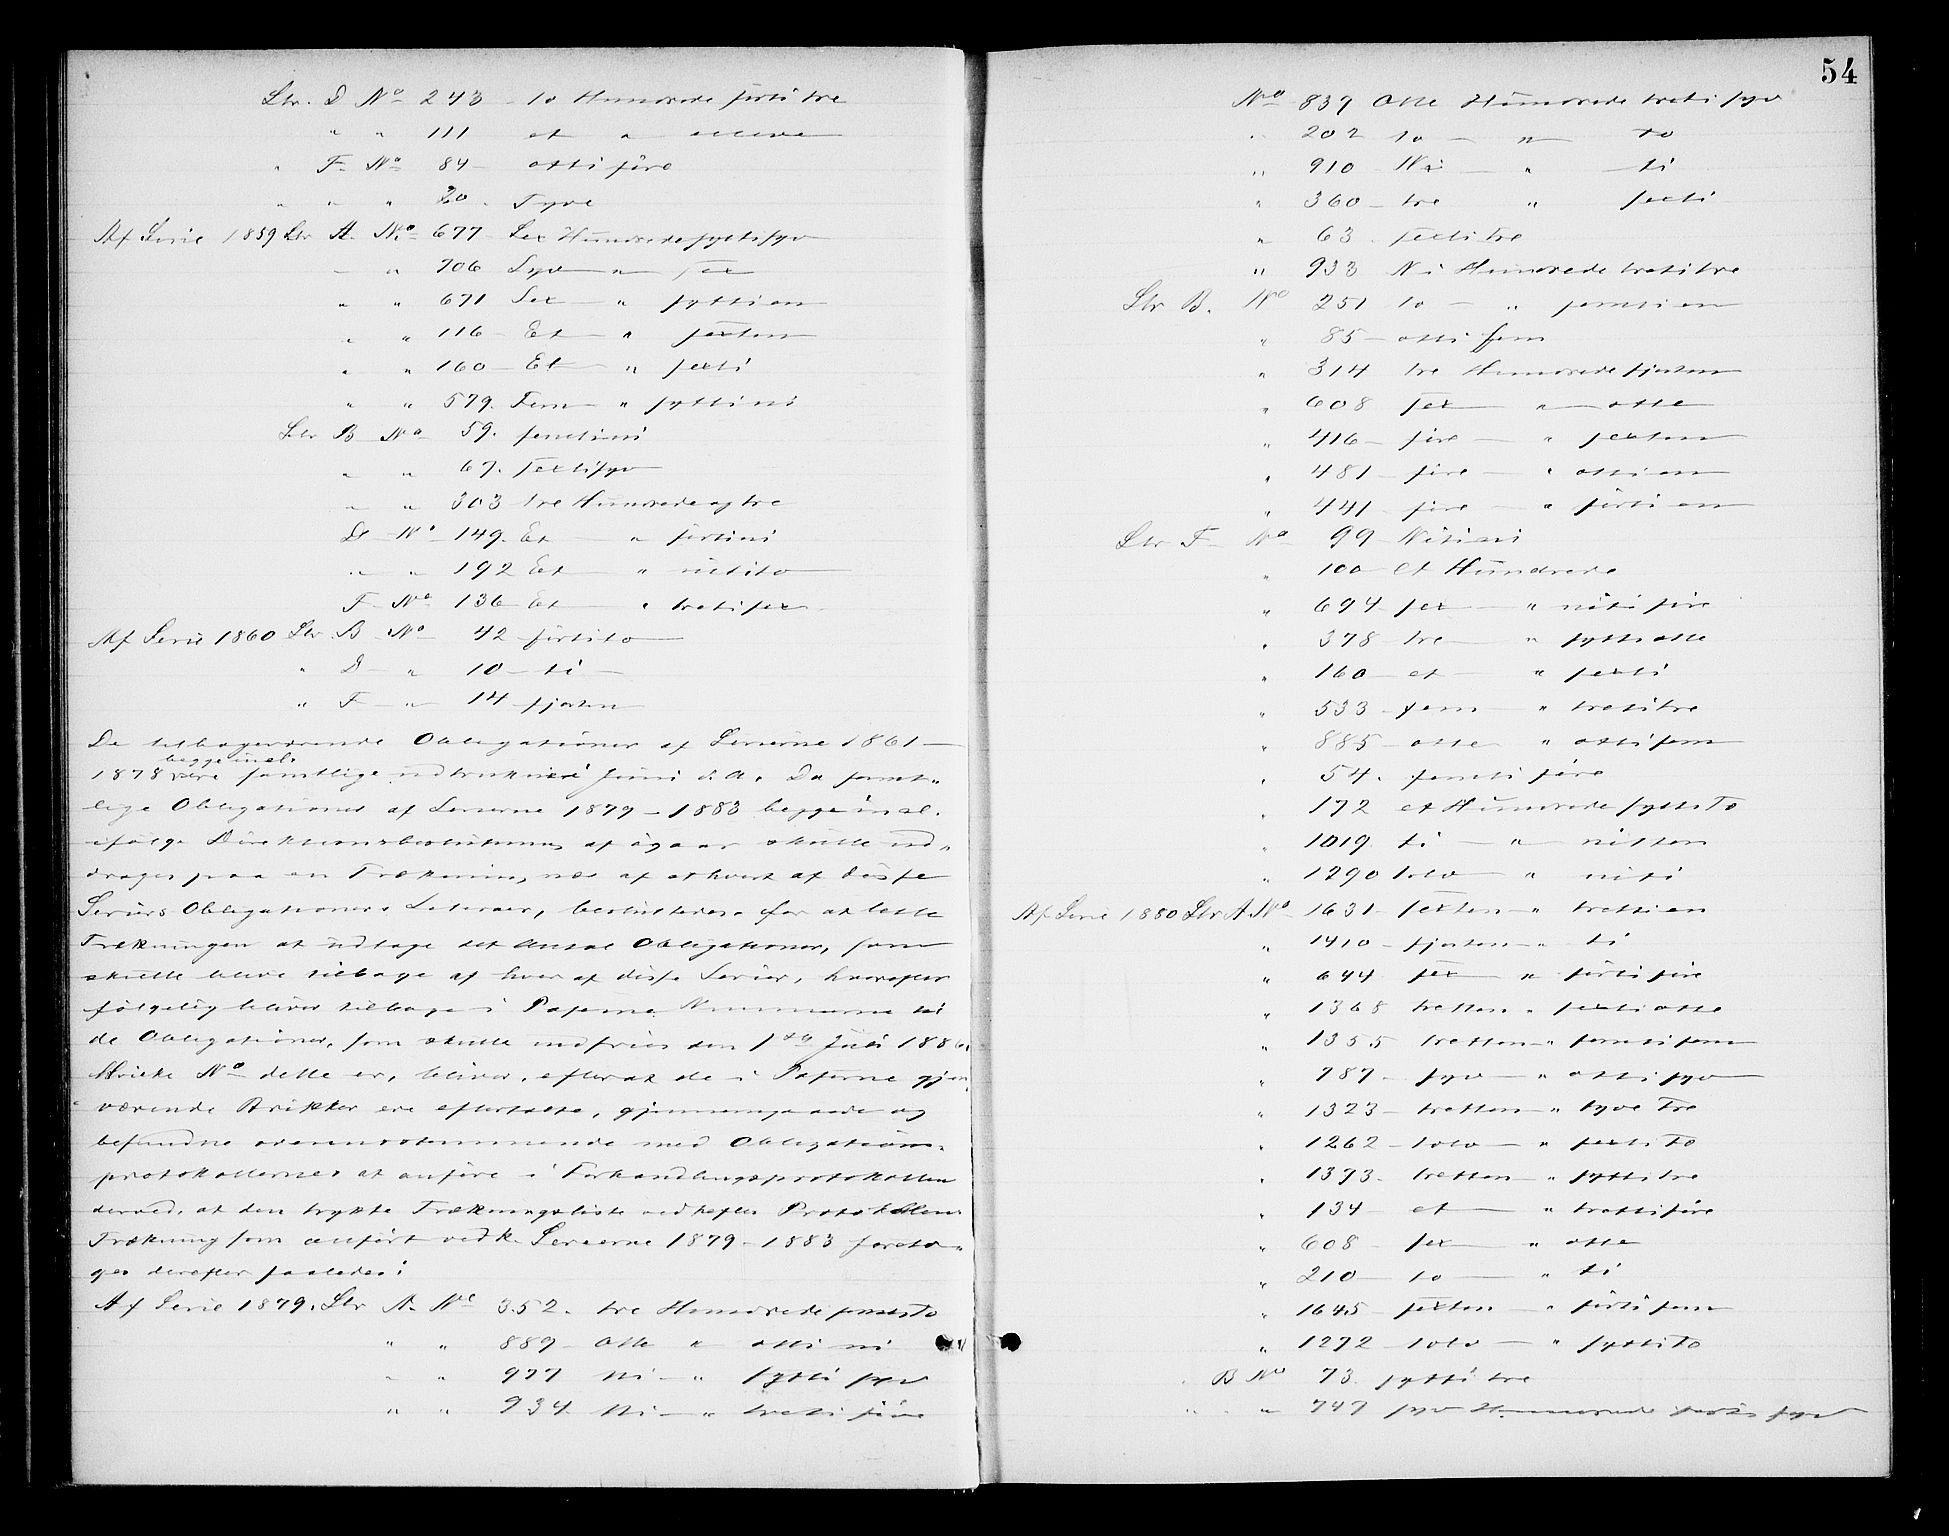 Ltr. D No 243 - to Hundrede førti tre
" " 111 et " elleve
" F. No 84 - otti fire
" " " 20 - Tyve
Af Serie 1859 Ltr A. No 677 - Sex Hundrede sytti syv
" " 706 Syv " sex
" " 671 Sex " sytti en
" " 116 - Et " sexten
" " 160 - Et " sexti
" " 579. Fem " sytti ni
Ltr B No 59. femti ni
" " 67. sexti syv
" " 303 tre Hundrede og tre
D No 149. Et " førti ni
" " 192 Et " nitito
F No 136 Et " treti sex
Af Serie 1860 Ltr. B No 42 førtito
" D " 10 - ti
" F " 14 fjorten
De tilbageværende Obligationer af Serierne 1861 -
begge incl.
1878 ere samtlige udtrukne i Juni d. A. Da samt-
lige Obligationer af Serierne 1879 - 1883 begge incl.
ifølge Direktionsbeslutning af igaar skulle ud-
drages paa en Trækning, af ethvert af disse
Seriers Obligationers Literaer, besluttedes for at lette
Trækningen at udtage det Antal Obligationer, som
skulle blive tilbage af hver af disse Serier, hvorefter
følgelig bliver tilbage i Poserne Numrene til
de Obligationer, som skulle indfries den 1ste Juli 1886.
Hvilke No dette er, bliver, efterat de i Poserne gjen-
værende Brikker ere eftertalte, gjennemgaaede og
befundne overensstemmende med Obligations-
protokollerne at anføre i Forhandlingsprotokollen
derved, at den trykte Trækningsliste vedhæftes Protokollen.
Trækning som anført vedk. Serierne 1879 - 1883 foreto-
ges derefter saaledes:
Af Serie 1879. Ltr A. No 352. tre Hundrede femti To
" " 889 - Otte " otti ni
" " 977 Ni - " sytti syv
" " 934 Ni - " treti fire
54
No 837 Otte Hundrede treti syv
" 202 to - " to
" 910 Ni - " ti
" 360 - tre " sexti
" 63 sexti tre
" 933 Ni Hundrede treti tre
Ltr B. No 251 to - " femti en
" 85 - otti fem
" 314 tre Hundrede fjorten
" 608 sex " otte
" 416 - fire - " sexten
" 481 - fire - " otti en
" 441 - fire - " førti en
Ltr F No 99 Nitini
" 100 et Hundrede
" 694 sex - " niti fire
" 378 tre - " sytti otte
" 160 et - " sexti
" 533 fem - " treti tre
" 885 - otte " otti fem
" 54. femti fire
" 172 et Hundrede sytti To
" 1019. ti - " nitten
" 1290 tolv - " niti
Af Serie 1880 Ltr A No 1631 - sexten - " tretti en
" 1410 - fjorten - " ti
" 644 sex " førti fire
" 1368 tretten " sexti otte
" 1355 tretten - " femti fem
" 787 - syv - " otti syv
" 1323 - tretten - " tyve Tre
" 1262 - tolv - " sexti To
" 1373 - tretten - " sytti tre
" 134 - et - " tretti fire
" 608 - sex - " otte
" 210 - to - " ti
" 1645 - sexten - " førti fem
" 1272 - tolv - " sytti To
B No 73 sytti tre
" " 747 syv Hundrede førti syv